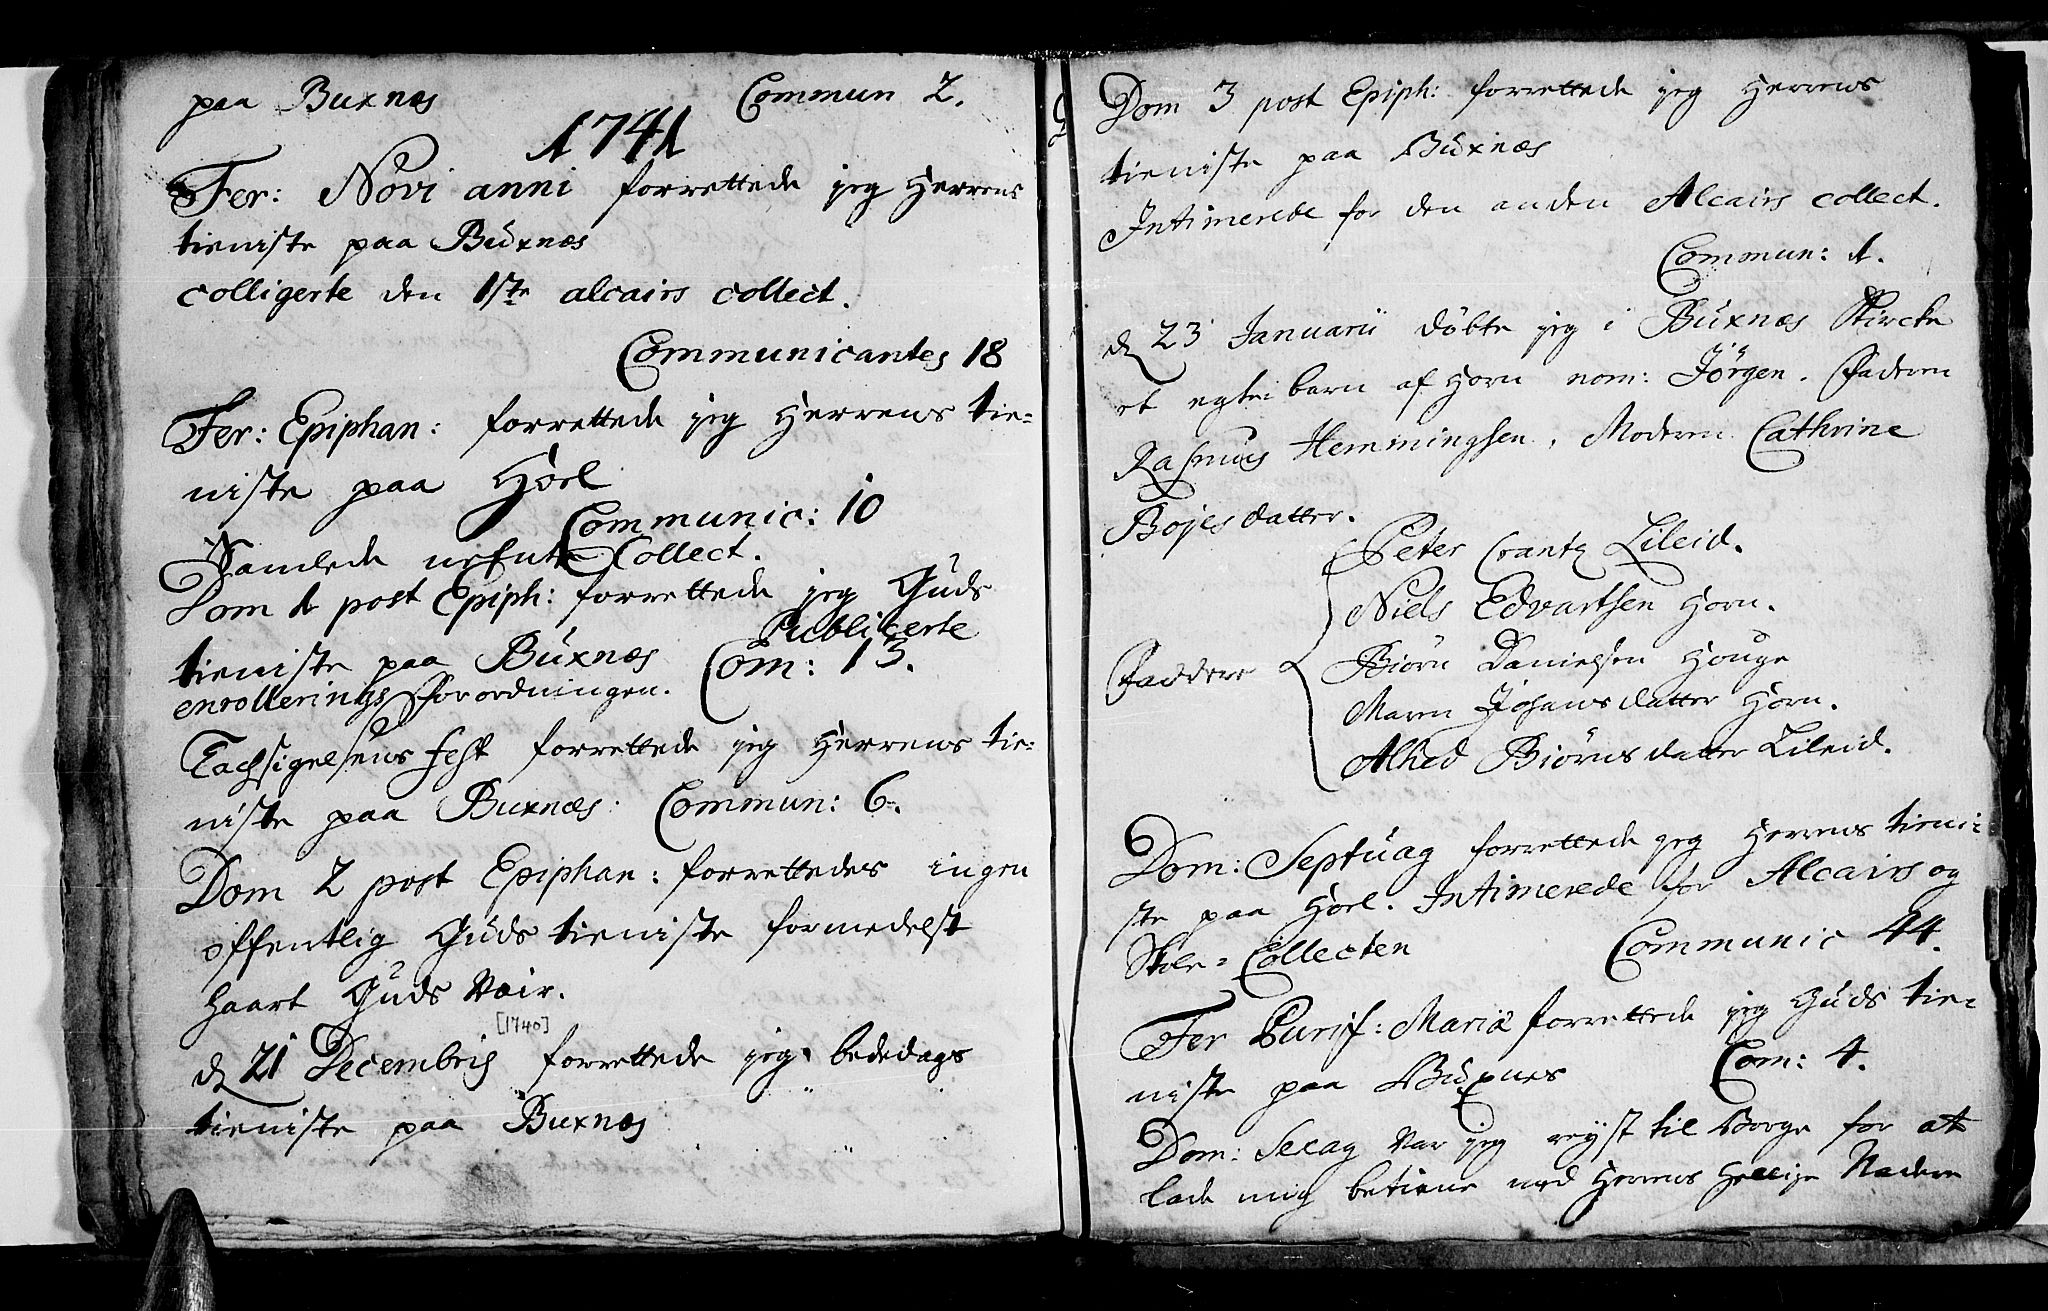 paa Buxnæs Commun 2.
1741
Fer: Novi anni forrettede jeg Herrens
tieniste paa Buxnæs
colligerte den 1ste alcairs collect.
Communicantes 18
Fer: Epiphan: forrettede jeg Herrens tie-
niste paa Hoel
Communic: 10
Samlede Collect.
Dom 1 post Epiph: forrettede jeg Guds
tieniste paa Buxnæs Com: 13. Publicerte
enrollerings Forordningen.
Tachsigelsens fest forrettede jeg Herrens tie-
niste paa Buxnæs. Commun: 6.
Dom 2 post Epiphan: forrettedes ingen
offentlig Guds tieniste formedelst
haart Guds Vair.
[1740]
d 21 Decembris forrettede jeg bededags
tieniste paa Buxnæs
Dom 3 post Epiph: forrettede jeg Herrens
tieniste paa Buxnæs
Intimerede for den anden Alcairs collect.
Commun: 1.
d 23 Januarii døbte jeg i Buxnæs Kircke
et egte barn af Horn nom: Jørgen. Faderen
Rasmus Hemmingsen, Moderen Cathrine
Bojesdatter.
Peter Crantz Lileid.
Niels Edvartsen Horn.
Faddere Biørn Danielsen Houge
Maren Johansdatter Horn.
Alhed Biørnsdatter Lileid.
Dom: Septuag forrettede jeg Herrens tieni-
ste paa Hoel. Intimerede for Alcairs og
Skole-Collecten Communic 44.
Fer Purif: Mariæ forrettede jeg Guds tie-
niste paa Buxnes Com: 4.
Dom: Sexag var jeg reyst til Borge for at
lade mig betiene med Herrens hellige Nadere